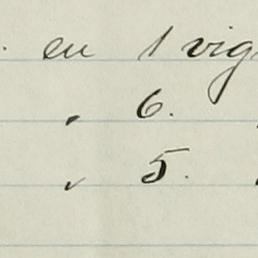 . en 1 vig
" 6.
" 5.